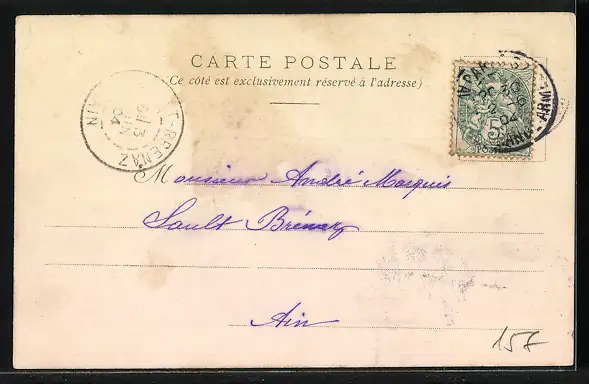 CARTE POSTALE
(Ce côté est exclusivement réservé à l'adresse)
T-BRENAZ
3
04
AIN
5
04
Monsieur André Marquis
Sault Brénaz
Ain
15F